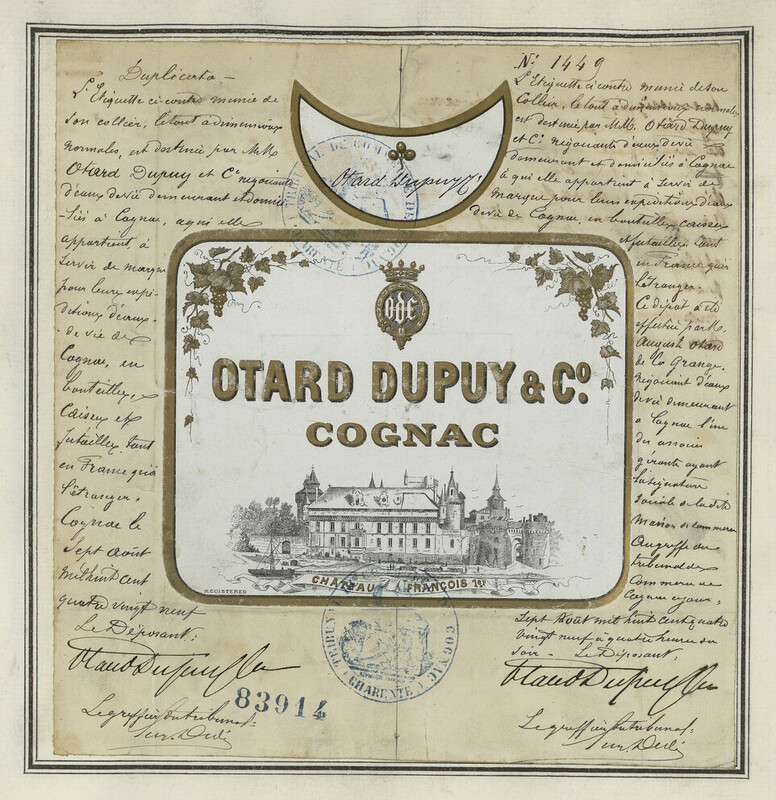 Duplicata —
L'Etiquette ci-contre munie de
son collier, le tout a dimensions
normales, est destinée par M.M.
Otard Dupuy et Cie négociants
d'eaux de vie demeurant et domici-
-liés à Cognac, à qui elle
appartient, à
servir de marque
pour leurs expé-
ditions d'eaux-
-de vie de
Cognac, en
bouteilles,
Caisses et
futailles, tant
en France qu'à
l'étranger.
Cognac le
Sept Août
mil huit cent
quatre vingt neuf
Le Déposant:
Otard Dupuy & Co
83914
Le greffier du tribunal
Otard Dupuy & Co
ODC
OTARD DUPUY & Co.
COGNAC
CHATEAU FRANÇOIS 1er
REGISTERED
TRIBUNAL DE COMMERCE DE COGNAC
CHARENTE
TRIBUNAL COGNAC
CHARENTE
No 1449
L'Etiquette ci contre munie de son
Collier, le tout a dimensions normales
est destinée par M.M. Otard Dupuy
et Cie négociants d'eaux de vie
demeurant et domiciliés à Cognac
à qui elle appartient à servir de
marque pour leurs expéditions d'eaux
de vie de Cognac, en bouteilles caisses
et futailles tant
en France qu'à
l'étranger.
Ce dépôt a été
effectué par M.
Auguste Otard
de la Grange,
négociant d'eaux
de vie demeurant
à Cognac l'un
des associés
gérants ayant
la signature
sociale de la dite
Maison de commerce
au greffe du
tribunal de
Commerce de
Cognac ce jour,
Sept Août mil huit cent quatre
vingt neuf à quatre heures du
soir — Le Déposant,
Otard Dupuy & Co
Le greffier du tribunal